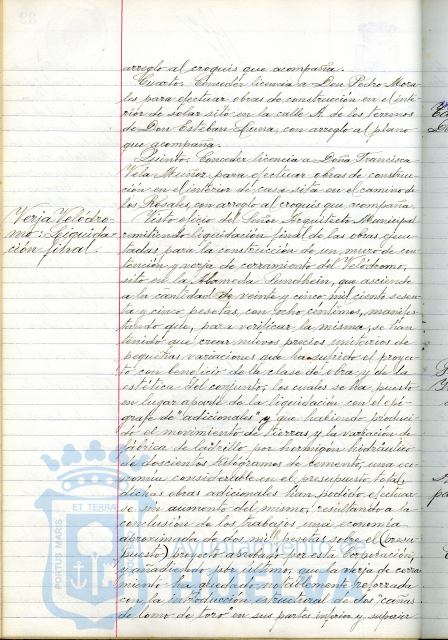 arreglo al croquis que acompaña.
Cuarto. Conceder licencia a Don Pedro Mora-
les para efectuar obras de construcción en el inte-
rior de solar sito en la calle A. de los terrenos
de Don Esteban Luna, con arreglo al plano
que acompaña.
Quinto. Conceder licencia a Doña Francisca
Vela Muñoz para efectuar obras de construc-
ción en el interior de casa sita en el camino de
los Rosales, con arreglo al croquis que acompaña.
Verja Velódro-
mo: Liquida-
ción final.
Visto oficio del Señor Arquitecto Municipal
remitiendo liquidación final de las obras ejecu-
tadas para la construcción de un muro de con-
tención y verja de cerramiento del Velódromo,
sito en la Alameda Sundheim, que asciende
a la cantidad de veinte y cinco mil ciento sesen-
ta y cinco pesetas, con ocho céntimos, manifes-
tando que, para verificar la misma, se han
tenido que crear nuevos precios unitarios de
pequeñas variaciones que ha sufrido el proyec-
to con beneficio de la clase de obra y de la
estética del conjunto, los cuales se ha puesto
en lugar aparte de la liquidación con el epí-
grafe de "adicionales" y que habiendo produci-
do el movimiento de tierras y la variación de
fábrica de ladrillo por hormigón hidráulico
de doscientos kilogramos de cemento, una eco-
nomía considerable en el presupuesto total,
dichas obras adicionales han podido efectuar-
se sin aumento del mismo, resultando a la
conclusión de los trabajos una economía
aproximada de dos mil pesetas sobre el (presu-
puesto) proyecto aprobado por esta Corporación,
y añadiendo por último, que la verja de cerra-
miento ha quedado notablemente reforzada
con la introducción estructural de dos "cañas
de lomo de toro" en sus partes inferior y superior
PORTUS MARIS
ET TERRAE
HUELVA